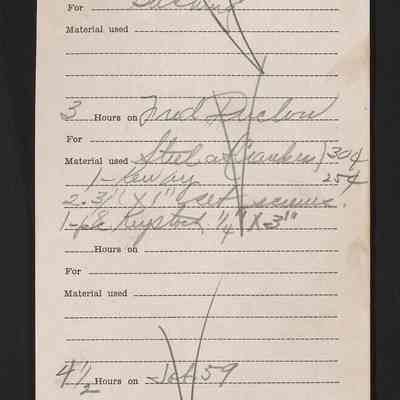 For
Material used
3 Hours on Fred Darlow
For
Material used Steel 30¢
1 - Keyway 25¢
2 - 3/ X 1" set screws.
1 - pc Keystock 1/4" X 3"
Hours on
For
Material used
4 1/2 Hours on Job 59